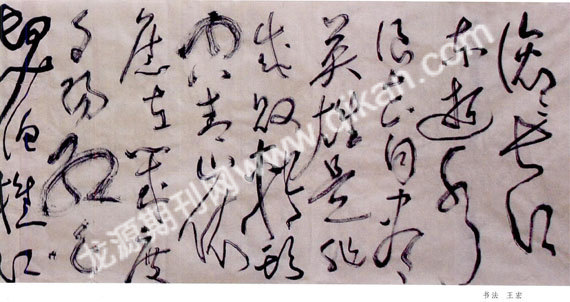 滚滚长江
东逝水
浪花淘尽
英雄是非
成败转头
空青山依
旧在几度
夕阳红白
发渔樵江
龙源期刊网www.qikan.com
书法 王宏